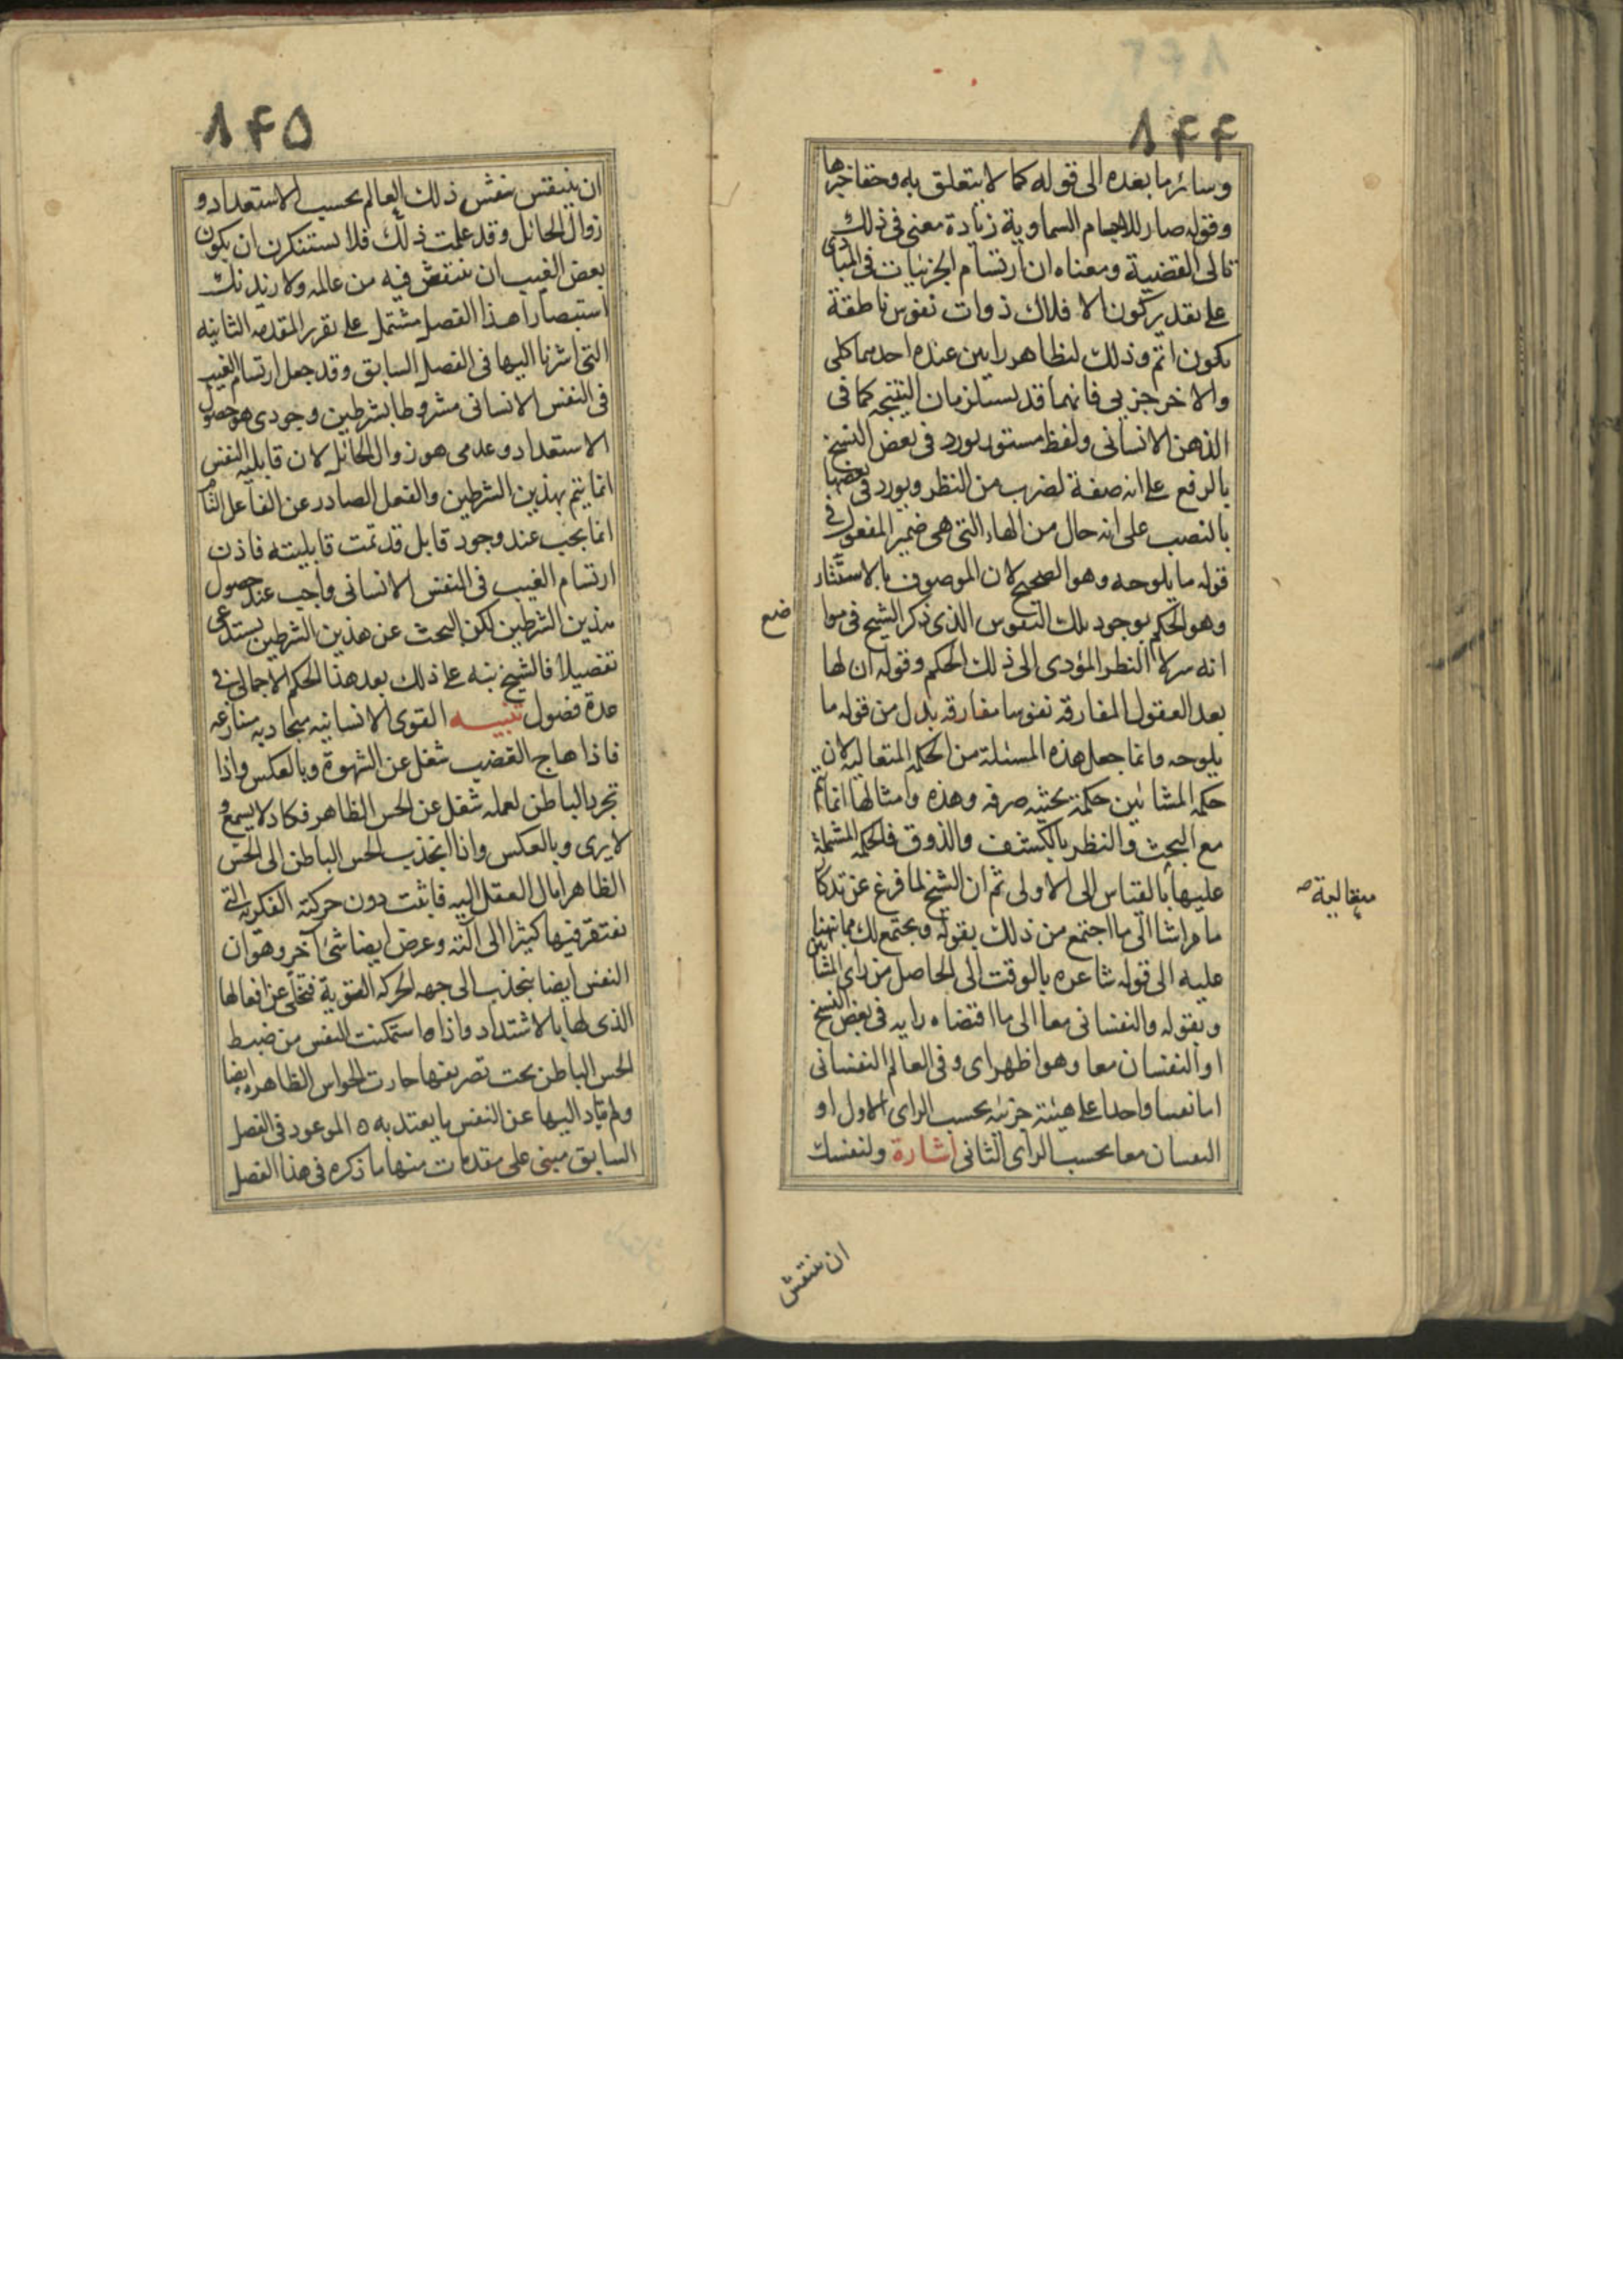 ٨٤٤
وسائر ما بعده الى قوله كما لا يتعلق به وحقا خبرها
وقوله صار للاجسام السماوية زيادة معنى فى ذلك
تالى القضية ومعناه ان ارتسام الجزئيات فى المبادى
على تقدير كون الافلاك ذوات نفوس ناطقة
يكون اتم وذلك لتظاهر رايين عنده احدهما كلى
والاخر جزيى فانهما قد يستلزمان النتيجه كما فى
الذهن الانسانى ولفظ مستور يورد فى بعض النسخ
بالرفع على انه صفة لضرب من النظر ويورد فى بعضها
بالنصب على انه حال من الهاء التى هى ضمير المفعول فى
قوله ما يلوحه وهو الصحيح لان الموصوف بالاستتار
وهو الحكم بوجود تلك النفوس الذى ذكر الشيخ فى موا
ضع
انه سر لا النظر المؤدى الى ذلك الحكم وقوله ان لها
بعد العقول المفارقه نفوسا مفارقه بدل من قوله ما
يلوحه وانما جعل هذه المسئلة من الحكمه المتعاليه لان
حكمه المشائين حكمة بحثيه صرفه وهذه وامثالها انما تتم
مع البحث والنظر بالكشف والذوق فالحكمه المشتملة
عليها بالقياس الى الاولى ثم ان الشيخ لما فرغ عن تذكار
متعالية
ما مر اشار الى ما اجتمع من ذلك بقوله ويجتمع لك مما نبهنا
عليه الى قوله شاعره بالوقت الى الحاصل من راى المشائين
وبقوله والنفسانى معا الى ما اقتضاه رايه فى بعض النسخ
او النفسان معا وهو اظهر اى وفى العالم النفسانى
اما نفسا واحدا على هيئة جزئيه بحسب الراى الاول او
النفسان معا بحسب الراى الثانى اشارة ولنفسك
ان تنتقش
٨٤٥
ان ينتقش بنقش ذلك العالم بحسب الاستعداد و
زوال الحائل وقد علمت ذلك فلا يستنكرن ان يكون
بعض الغيب ان ينتقش فيه من عالمه ولازيدنك
استبصارا هذا الفصل مشتمل على تقرير المقدمه الثانيه
التى اشرنا اليها فى الفصل السابق وقد جعل ارتسام الغيب
فى النفس الانسانى مشروطا بشرطين وجودى هو حصول
الاستعداد وعدمى هو زوال الحائل لان قابليه النفس
انما يتم بهذين الشرطين والفعل الصادر عن الفاعل التام
انما يجب عند وجود قابل قد تمت قابليته فاذن
ارتسام الغيب فى النفس الانسانى واجب عند حصول
هذين الشرطين لكن البحث عن هذين الشرطين يستدعى
تفصيلا فالشيخ نبه على ذلك بعد هذا الحكم الاجمالى فى
عدة فصول تنبيه القوى الانسانيه متجاذبه متنازعه
فاذا هاج الغضب شغل عن الشهوة وبالعكس واذا
تجرد الباطن لعمله شغل عن الحس الظاهر فكاد لا يسمع و
لا يرى وبالعكس واذا انجذب الحس الباطن الى الحس
الظاهر امال العقل اليه فانبت دون حركته الفكريه التى
يفتقر فيها كثيرا الى آلته وعرض ايضا شئ آخر وهو ان
النفس ايضا ينجذب الى جهه الحركه القويه فتخلى عن افعالها
الذى لها بالاشتداد واذا استمكنت النفس من ضبط
الحس الباطن تحت تصريفها حارت الحواس الظاهره ايضا
ولم يتاد اليها عن النفس ما يعتد به ه الموعود فى الفصل
السابق مبنى على مقدمات منها ما ذكره فى هذا الفصل